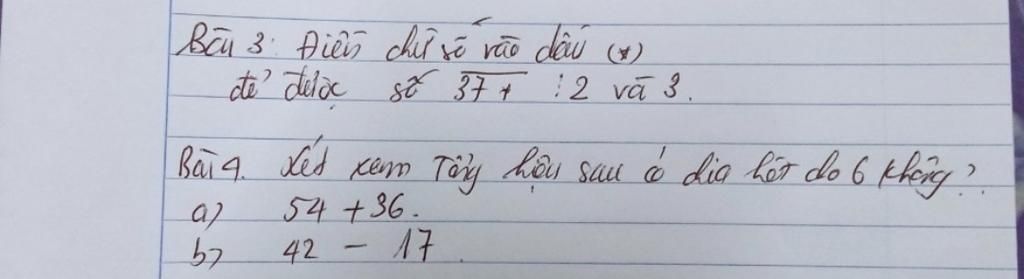 Bài 3: Điền chữ số vào dấu (*)
để được số 37* : 2 và 3.
Bài 4. Xét xem Tổng hiệu sau có chia hết cho 6 không?
a) 54 + 36.
b) 42 - 17